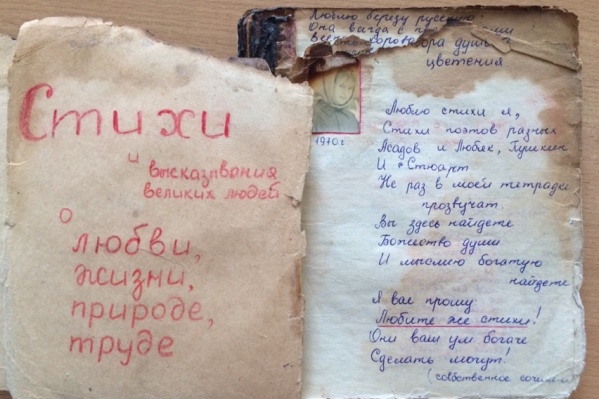 Стихи
и
высказывания
великих людей
о
любви,
жизни,
природе,
труде
Люблю березу русскую!
Она всегда с
душ
цветения
1970г
Люблю стихи я,
Стихи поэтов разных
Асадов и Любяк, Пушкин
И Стюарт
Не раз в моей тетрадке
прозвучат.
Вы здесь найдете
Божество души
И мыслию богатую
найдете
Я вас прошу:
Любите же стихи!
Они ваш ум богаче
Сделать могут!
(собственное сочине